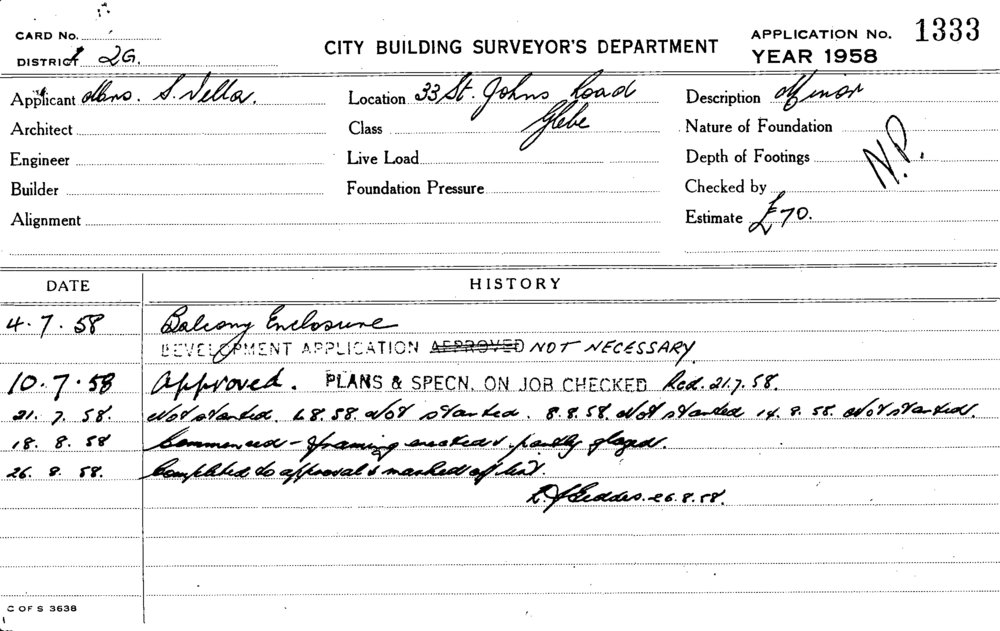 CARD No.
DISTRICT 2G.
CITY BUILDING SURVEYOR'S DEPARTMENT
APPLICATION No. 1333
YEAR 1958
Applicant Mrs. S. Vella.
Location 33 St. Johns Road
Glebe
Description Minor
Architect
Class
Nature of Foundation
Engineer
Live Load
Depth of Footings
N.P.
Builder
Foundation Pressure
Checked by
Alignment
Estimate £70.
DATE HISTORY
4.7.58 Balcony Enclosure
DEVELOPMENT APPLICATION APPROVED NOT NECESSARY
10.7.58 Approved. PLANS & SPECN. ON JOB CHECKED Rcd. 21.7.58.
21.7.58. Not started. 1.8.58. Not started. 8.8.58. Not started 14.8.58. Not started.
18.8.58 Commenced - framing erected & partly glazed.
26.8.58. Completed to approval & marked off list.
Geddes. 26.8.58.
C OF S 3638